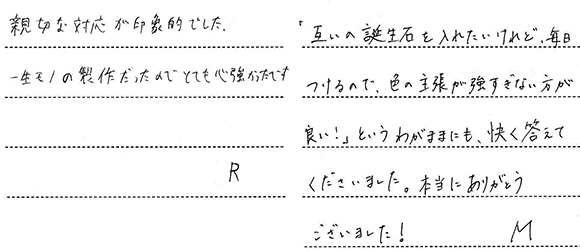 親切な対応が印象的でした。
一生モノの製作だったのでとても心強かったです
R
「互いの誕生石を入れたいけれど、毎日
つけるので、色の主張が強すぎない方が
良い!」というわがままにも、快く答えて
くださいました。本当にありがとう
ございました!
M